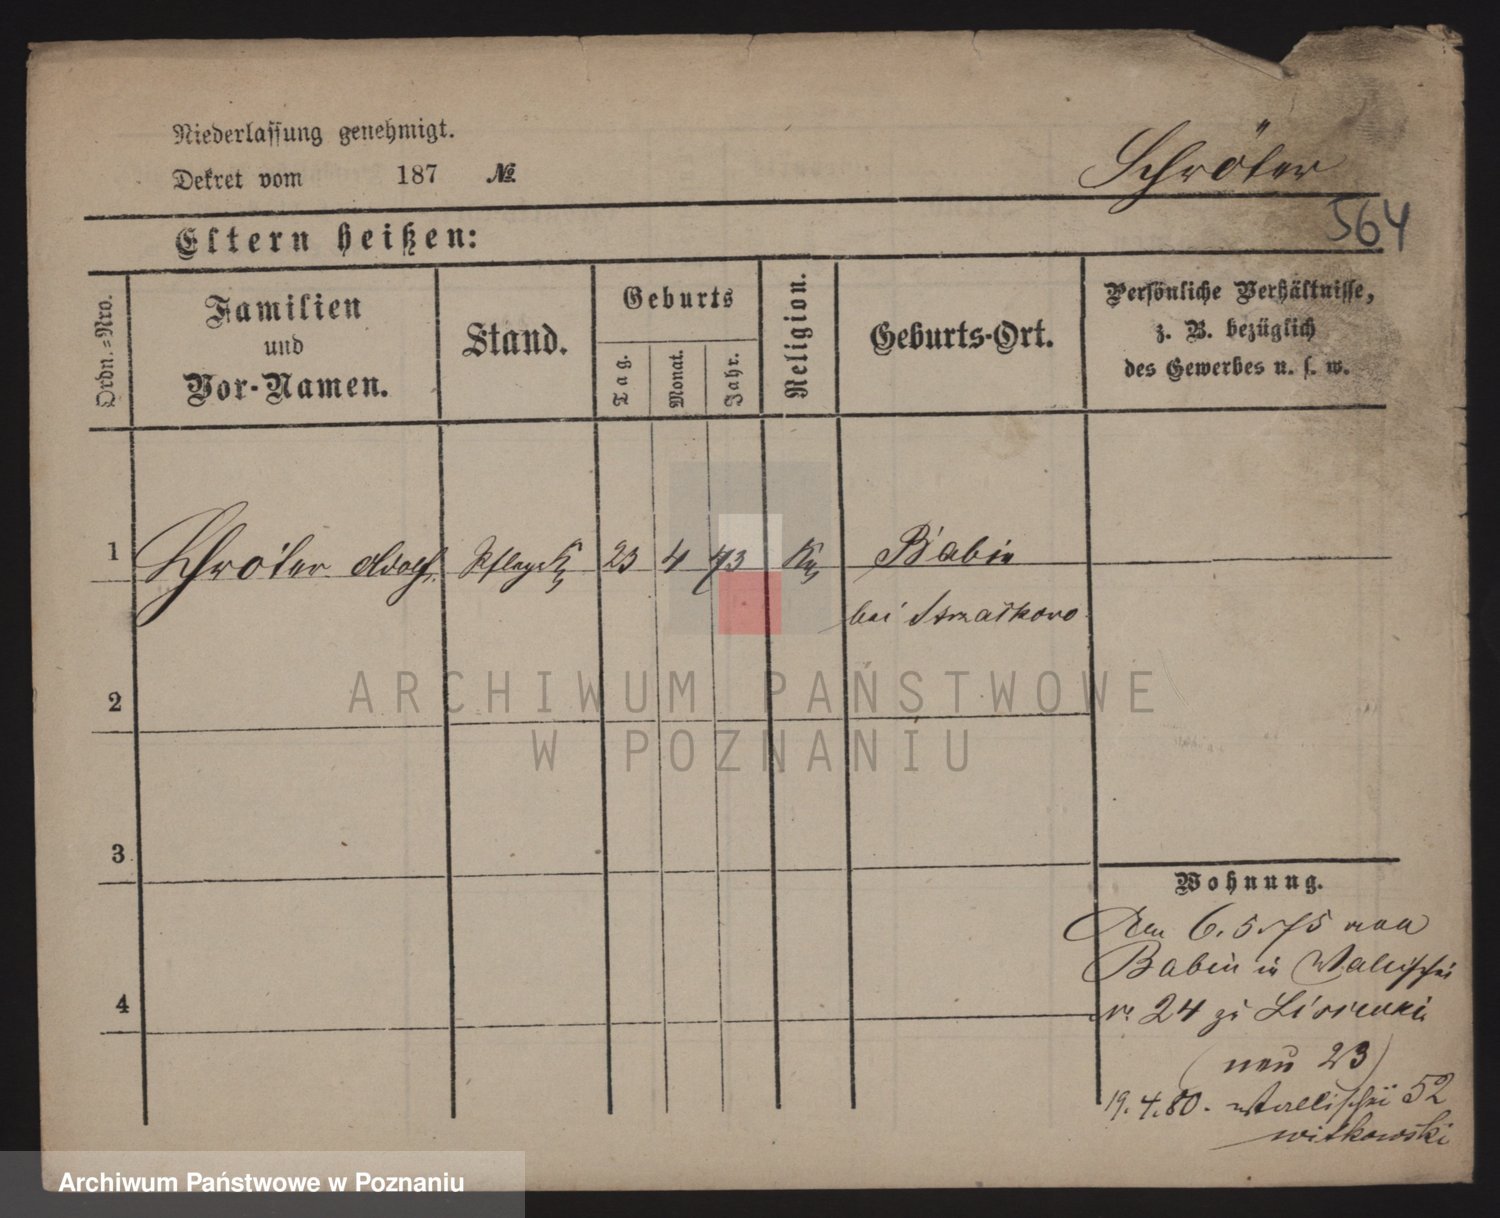 Niederlassung genehmigt.
Dekret vom 187 №
Schröter
564
Eltern heißen:
Ordn.=Nro.
Familien
und
Vor-Namen.
Stand.
Geburts
Tag.
Monat.
Jahr.
Religion.
Geburts-Ort.
Persönliche Verhältnisse,
z. B. bezüglich
des Gewerbes u. s. w.
1
Schröter Adolf
23 4 73
Babin
bei Strzałkowo
2
ARCHIWUM PAŃSTWOWE
W POZNANIU
3
Wohnung.
6. 5. 75 von
Babin in Wallischei
24 zu
4
(neu 23)
19. 4. 80. Wallischei 52
Witkowski
Archiwum Państwowe w Poznaniu